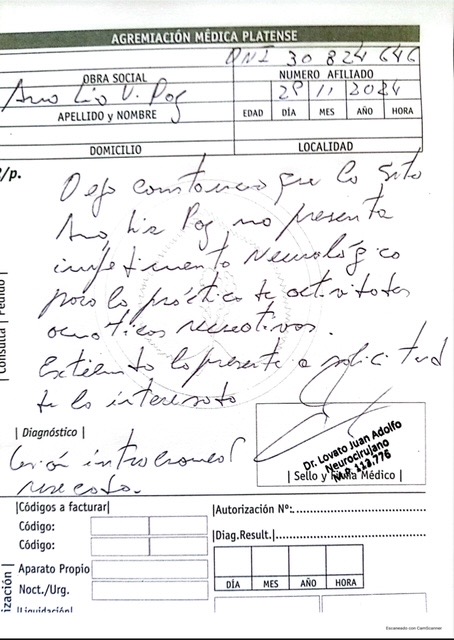 AGREMIACIÓN MÉDICA PLATENSE
DNI 30 824 646
OBRA SOCIAL
NUMERO AFILIADO
Ana Lia V. Pog
29 11 2024
APELLIDO y NOMBRE
EDAD DÍA MES AÑO HORA
DOMICILIO
LOCALIDAD
R/p.
Dejo constancia que la Srta
Ana Lia Pog no presenta
impedimento Neurológico
para la práctica de actividades
acuáticas recreativas.
Extiendo la presente a solicitud
de la interesada
| Consulta | Pedido |
| Diagnóstico |
Lesión intracraneal
Dr. Lovato Juan Adolfo
Neurocirujano
M.P. 113.776
| Sello y Firma Médico |
|Códigos a facturar|
Código:
Código:
Aparato Propio
Noct./Urg.
|Liquidación|
|Autorización Nº:
|Diag.Result.|
DÍA MES AÑO HORA
Escaneado con CamScanner